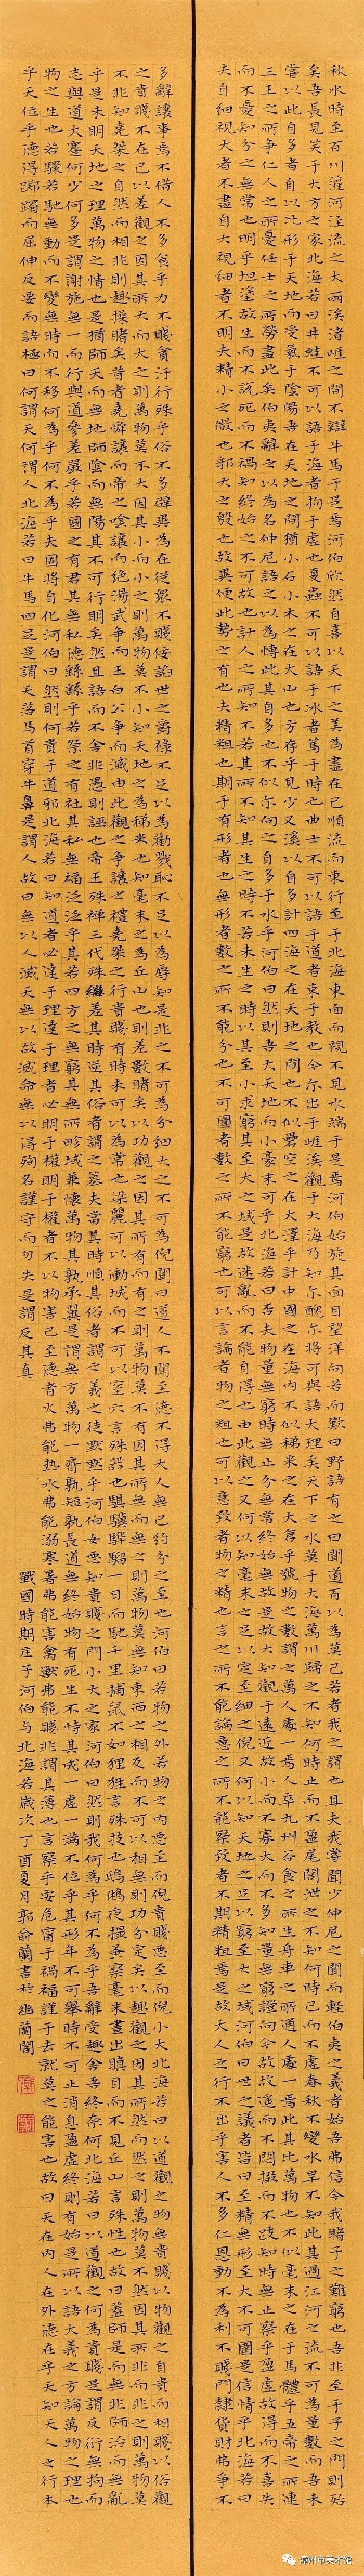 秋水時至百川灌河涇流之大兩涘渚崖之間不辯牛馬于是焉河伯欣然自喜以天下之美為盡在己順流而東行至于北海東面而視不見水端于是焉河伯始旋其面目望洋向若而歎曰野語有之曰聞道百以為莫己若者我之謂也且夫我嘗聞少仲尼之聞而輕伯夷之義者始吾弗信今我睹子之難窮也吾非至于子之門則殆
矣吾長見笑于大方之家北海若曰井蛙不可以語于海者拘于虛也夏蟲不可以語于冰者篤于時也曲士不可以語于道者束于教也今尔出于崖涘觀于大海乃知尔醜尔將可與語大理矣天下之水莫于大海萬川歸之不知何時止而不盈尾閭泄之不知何時已而不虛春秋不變水旱不知此其過江河之流不可為量數而吾未
嘗以此自多者自以比形于天地而受氣于陰陽吾在天地之間猶小石小木之在大山也方存乎見少又奚以自多計四海之在天地之間也不似礨空之在大澤乎計中國之在海内不似稊米之在大倉乎號物之數謂之萬人處一焉人卒九州谷食之所生舟車之所通人處一焉此其比萬物也不似毫末之在于馬體乎五帝之所連
三王之所爭仁人之所憂任士之所勞盡此矣伯夷辭之以為名仲尼語之以為博此其自多也不似尔向之自多于水乎河伯曰然則吾大天地而小豪末可乎北海若曰否夫物量無窮時無止分無常終始無故是故大知觀于遠近故小而不寡大而不多知量無窮證向今故故遥而不悶掇而不跂知時無止察乎盈虛故得而不喜失
而不憂知分之無常也明乎坦塗故生而不說死而不禍知終始之不可故也計人之所知不若其所不知其生之時不若未生之時以其至小求窮其至大之域是故迷亂而不能自得也由此觀之又何以知毫末之足以定至細之倪又何以知天地之足以窮至大之域河伯曰世之議者皆曰至精無形至大不可圍是信情乎北海若曰
夫自細視大者不盡自大視細者不明夫精小之微也郛大之殷也故異便此勢之有也夫精粗也期于有形者也無形者數之所不能分也不可圍者數之所不能窮也可以言論者物之粗也可以意致者物之精也言之所不能論意之所不能察致者不期精粗焉是故大人之行不出乎害人不多仁恩動不為利不賤門隸貨財弗爭不
多辭讓事焉不借人不多食乎力不賤貪汙行殊乎俗不多辟異為在從眾不賤佞諂世之爵祿不足以為勸戮恥不足以為辱知是非之不可為分細大之不可為倪聞曰道人不聞至德不得大人無己約分之至也河伯曰若物之外若物之内惡至而倪貴賤惡至而倪小大北海若曰以道觀之物無貴賤以物觀之自貴而相賤以俗觀
之貴賤不在己以差觀之因其所大而大之則萬物莫不大因其小而小之則萬物莫不小知天地之為稊米也知毫末之為丘山也則差數睹矣以功觀之因其所有而有之則萬物莫不有因其所無而無之則萬物莫無知東西之相及而不可以相無則功分定矣以趣觀之因其所然而然之則萬物莫不然因其所非而非之則萬物莫
不非知堯桀之自然而相非則趣操睹矣昔者堯舜讓而帝之噲讓而絶湯武爭而王白公爭而滅由此觀之爭讓之禮堯桀之行貴賤有時未可以為常也梁麗可以衝城而不可以窒穴言殊器也騏驥驊騮一日而馳千里捕鼠不如狸狌言殊技也鴟鵂夜撮蚤察毫末晝出瞋目而不見丘山言殊性也故曰蓋師是而無非師治而無亂
乎是未明天地之理萬物之情也是猶師天而無地師陰而無陽其不可行明矣然且語而不舍非愚則誣也帝王殊禅三代殊繼差其時逆其俗者謂之篡夫當其時順其俗者謂之義之徒默默乎河伯女惡知貴賤之門小大之家河伯曰然則我何為乎何不為乎吾辭受趣舍吾終奈何北海若曰以道觀之何為貴賤是謂反衍無拘而
志與道大蹇何少何多是謂謝施無一而行與道參差嚴乎若國之有君其無私德繇繇乎若祭之有社其私無福泛泛乎其若四方之無窮其無所畛域兼懷萬物其孰承翼是謂無方萬物一齊孰短孰長道無終始物有死生不恃其成一虛一滿不位乎其形年不可舉時不可止消息盈虛終則有始是所以語大義之方論萬物之理也
物之生也若驟若馳無動而不變無時而不移何為乎何不為乎夫固將自化河伯曰然則何貴于道邪北海若曰知道者必達于理達于理者必明于權明于權者不以物害己至德者火弗能热水弗能溺寒暑弗能害禽獸弗能賊非謂其薄也言察乎安危甯于禍福謹于去就莫之能害也故曰天在内人在外德在乎天知天人之行本
乎天位乎德得蹢躅而屈伸反要而語極曰何謂天何謂人北海若曰牛馬四足是謂天落馬首穿牛鼻是謂人故曰無以人滅天無以故滅命無以得殉名謹守而勿失是謂反其真
戰國時期庄子河伯与北海若歲次丁酉夏月郭俞蘭書於幽蘭閣
漳州市美术馆